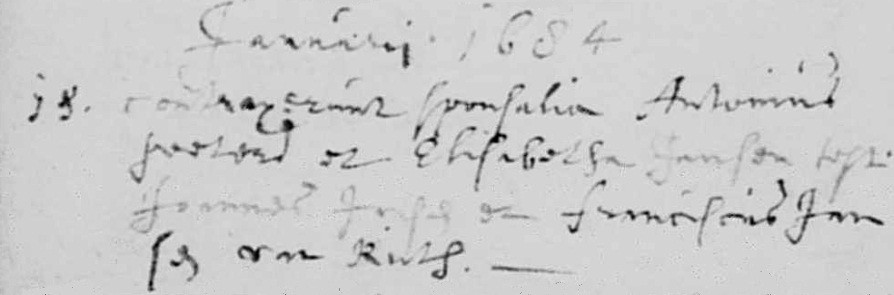 Januarij 1684
18. contraxerunt sponsalia Antonius
peeters et Elisabetha Jansen testes
Joannes et Franciscus Jan
sen van Rieth.